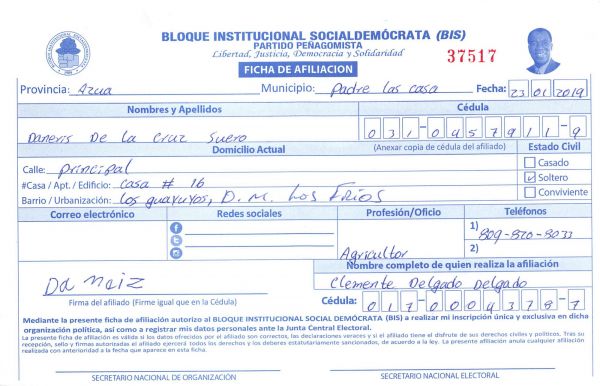 BLOQUE INSTITUCIONAL SOCIALDEMÓCRATA (BIS)
PARTIDO PEÑAGOMISTA
Libertad, Justicia, Democracia y Solidaridad
37517
FICHA DE AFILIACION
Provincia: Azua Municipio: Padre las casa Fecha: 23 01 2019
Nombres y Apellidos Cédula
Daneris De la Cruz Suero 031-0457911-9
Domicilio Actual (Anexar copia de cédula del afiliado) Estado Civil
Calle: principal Casado
#Casa / Apt. / Edificio: casa # 16 Soltero
Barrio / Urbanización: Los guayuyos, D. M. Los Frios Conviviente
Correo electrónico Redes sociales Profesión/Oficio Teléfonos
1) 809-820-8033
Agricultor 2)
Nombre completo de quien realiza la afiliación
Clemente Delgado Delgado
Firma del afiliado (Firme igual que en la Cédula) Cédula: 017-0004378-7
Mediante la presente ficha de afiliación autorizo al BLOQUE INSTITUCIONAL SOCIAL DEMÓCRATA (BIS) a realizar mi inscripción única y exclusiva en dicha
organización política, así como a registrar mis datos personales ante la Junta Central Electoral.
La presente ficha de afiliación es válida si los datos ofrecidos por el afiliado son correctos, las declaraciones veraces y si el afiliado tiene el disfrute de sus derechos civiles y políticos. Tras su
recepción, sello y firmas autorizadas el afiliado ejercerá todos los derechos y los deberes estatutariamente sancionados, de acuerdo a la ley. La presente afiliación anula cualquier afiliación
realizada con anterioridad a la fecha que aparece en esta ficha.
SECRETARIO NACIONAL DE ORGANIZACIÓN SECRETARIO NACIONAL ELECTORAL